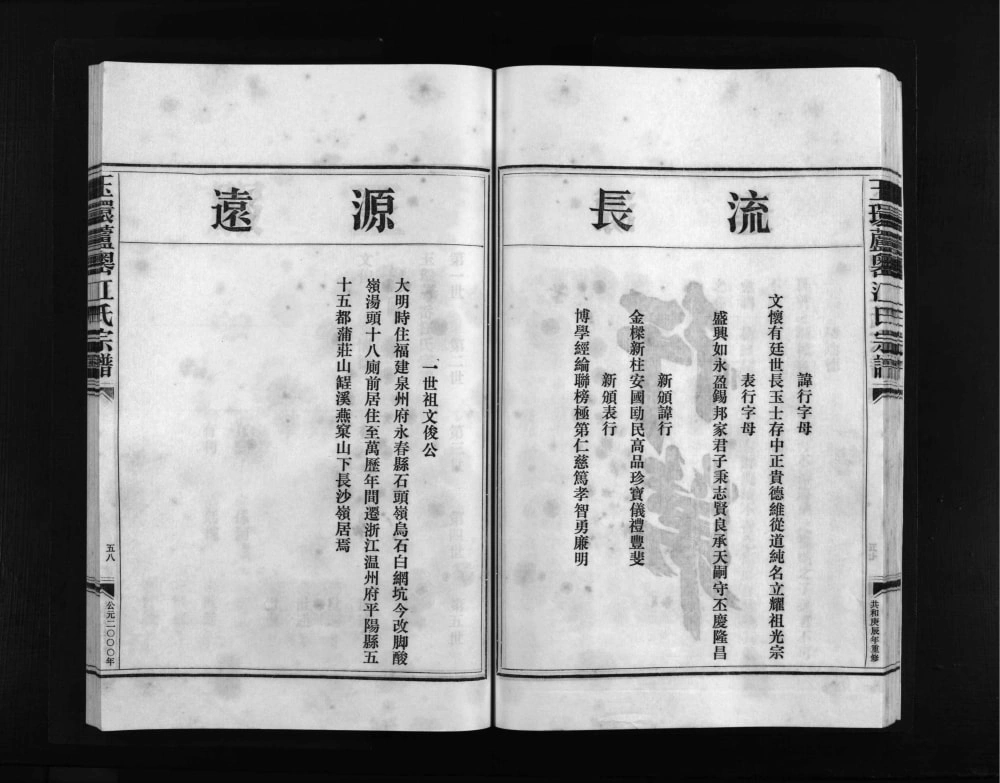 玉環蘆嶴江氏宗譜
五七
共和庚辰年重修
流長
諱行字母
文懷有廷世長玉士存中正貴德維從道純名立耀祖光宗
表行字母
盛興如永盈錫邦家君子秉志賢良承天嗣守丕慶隆昌
新頒諱行
金樑新柱安國勛民高品珍寶儀禮豐斐
新頒表行
博學經綸聯榜極第仁慈篤孝智勇廉明
源遠
一世祖文俊公
大明時住福建泉州府永春縣石頭嶺烏石白網坑今改脚酸
嶺湯頭十八廁前居住至萬歷年間遷浙江温州府平陽縣五
十五都蒲莊山溪燕窠山下長沙嶺居焉
玉環蘆嶴江氏宗譜
五八
公元二〇〇〇年